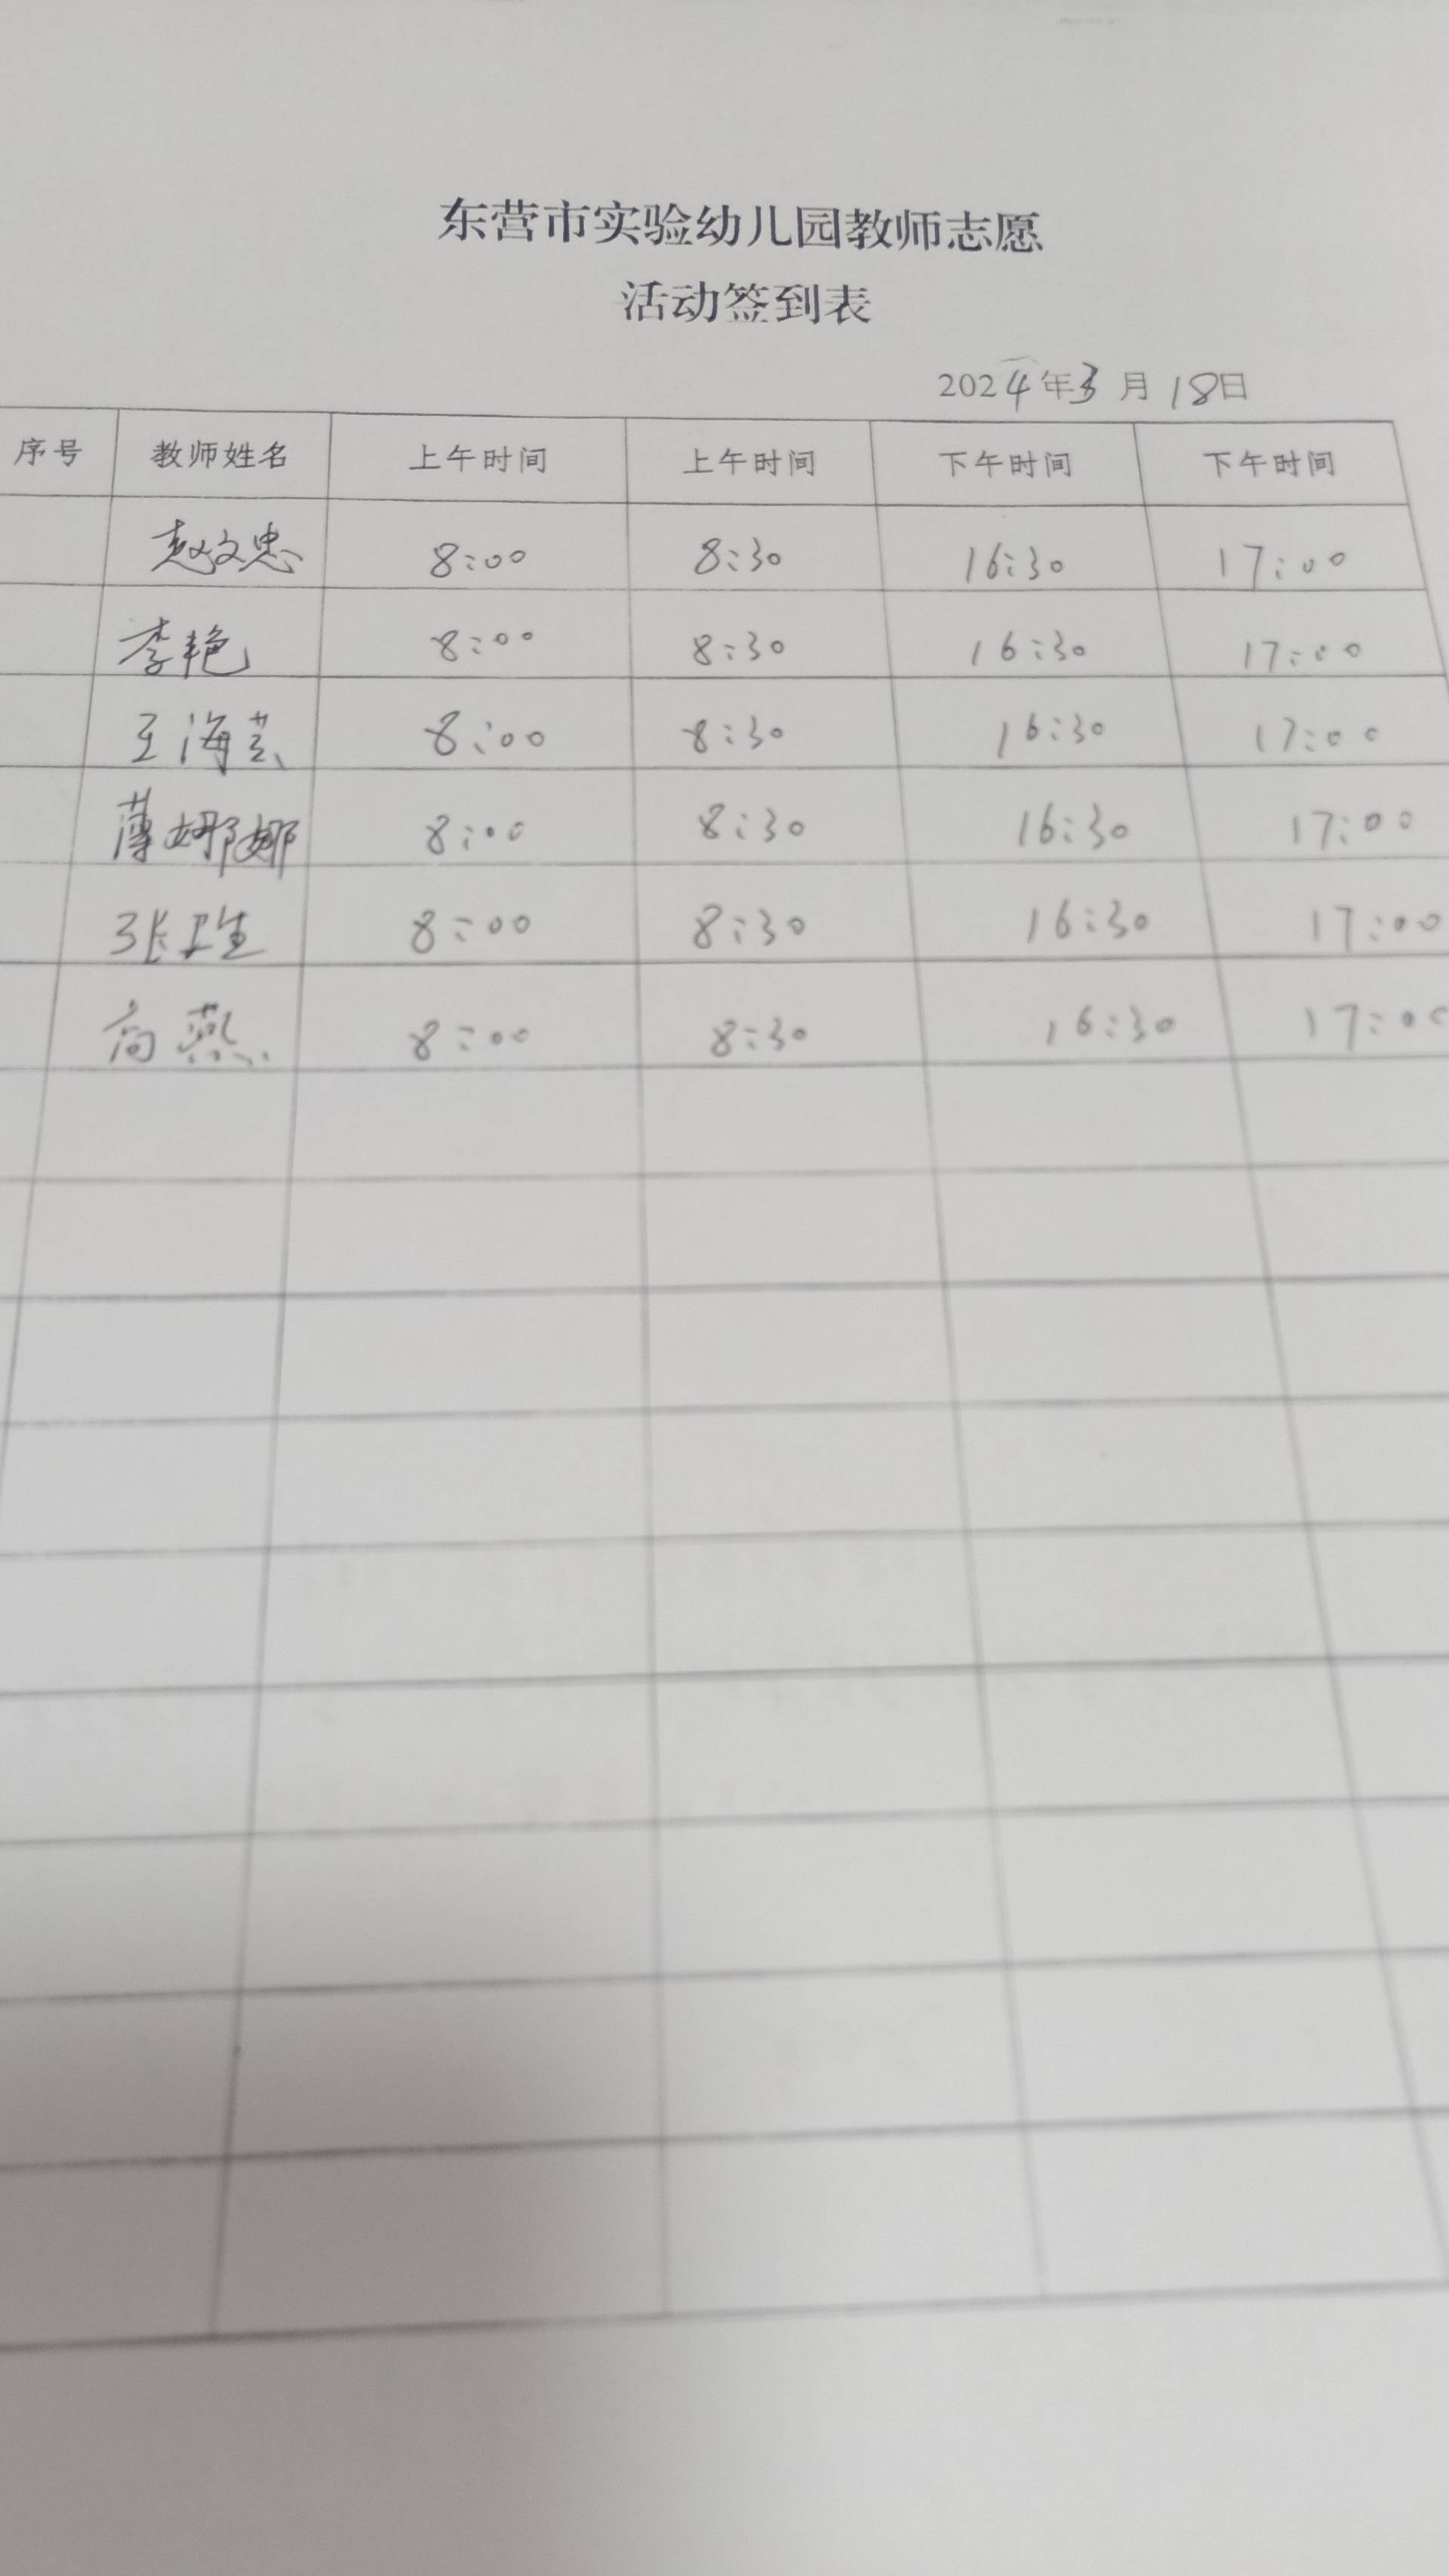 东营市实验幼儿园教师志愿
活动签到表
2024年3月18日
序号 教师姓名 上午时间 上午时间 下午时间 下午时间
赵文忠 8:00 8:30 16:30 17:00
李艳 8:00 8:30 16:30 17:00
王海芸 8:00 8:30 16:30 17:00
薄娜娜 8:00 8:30 16:30 17:00
张 8:00 8:30 16:30 17:00
高燕 8:00 8:30 16:30 17:00